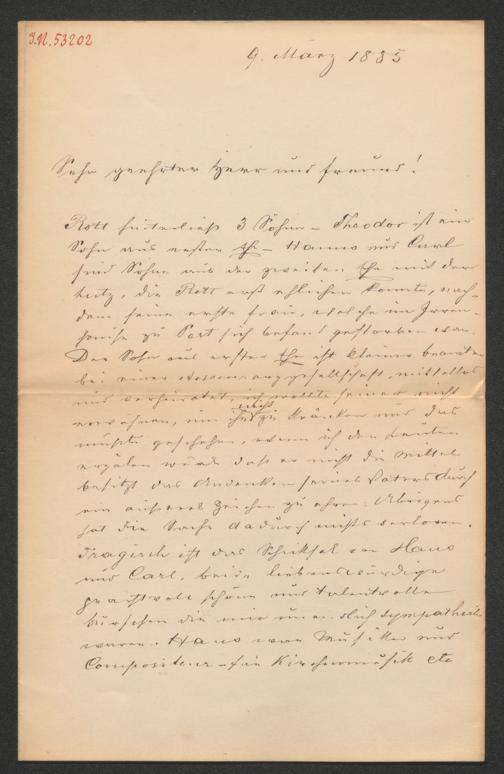 J.N. 53202
9. März 1885
Sehr geehrter Herr und Freund!
Rott hinterließ 3 Söhne – Theodor ist ein
Sohn aus erster Ehe – Hanns und Carl
sind Söhne aus der zweiten Ehe mit der
Lutz, die Rott erst ehlichen konnte, nach-
dem seine erste Frau, welche im Irren-
hause zu sich befand gestorben war.
Der Sohn aus erster Ehe ist kleiner Beamter
bei einer gesellschaft, mittellos
und verheiratet, ich wollte seiner nicht
erwähnen, um ihn nicht zu kränken und das
müßte geschehen, wenn ich den Leuten
erzälen würde daß er nicht die Mittel
besitzt das Andenken seines Vaters durch
ein äußeres Zeichen zu ehren. Übrigens
hat die Sache dadurch nichts verloren.
Tragisch ist das Schicksal von Hans
und Carl, beide liebenswürdige
prachtvolle schöne und talentvolle
Burschen die mir sympathisch
waren. Hans war Musiker und
Compositeur – für Kirchenmusik etc